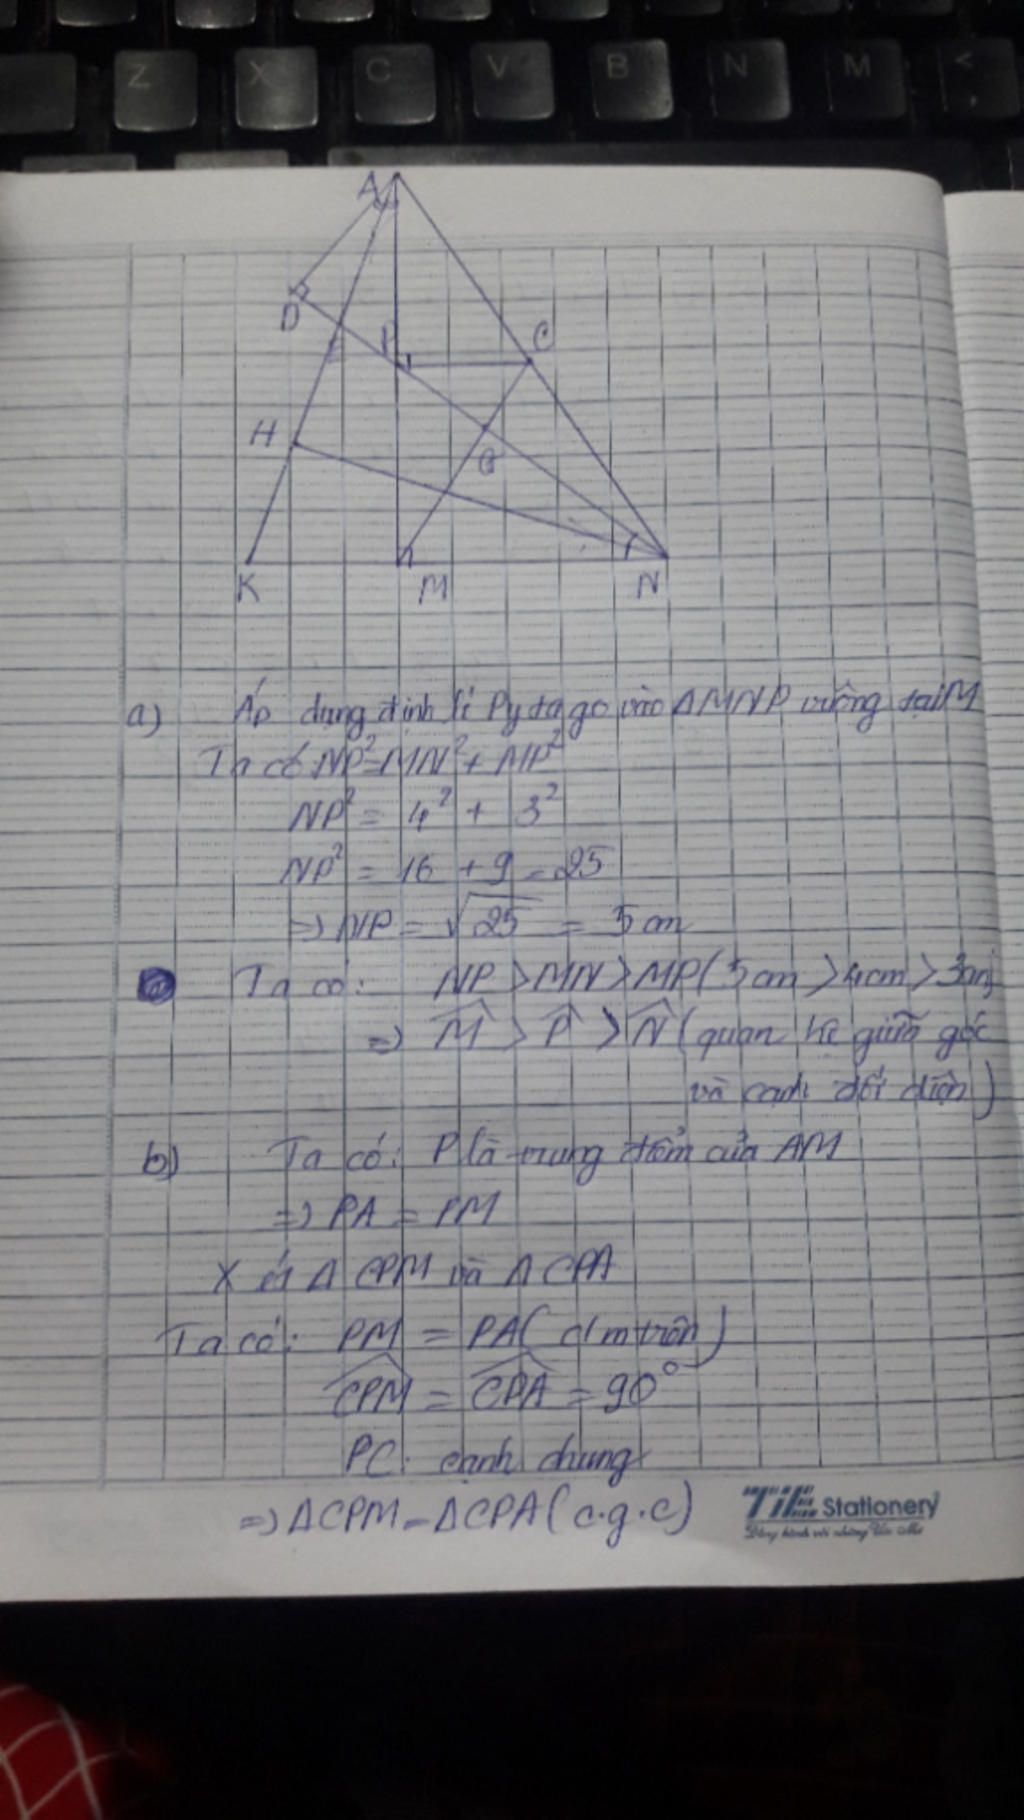 Z X C V B N M <
A
D
P
C
H
G
K
M
N
a) Áp dụng định lí Pytago vào ΔMNP vuông tại M
Ta có NP² = MN² + MP²
NP² = 4² + 3²
NP² = 16 + 9 = 25
=> NP = √25 = 5 cm
Ta có: NP > MN > MP (5 cm > 4cm > 3cm)
=> M̂ > P̂ > N̂ (quan hệ giữa góc
và cạnh đối diện)
b) Ta có: P là trung điểm của AM
=> PA = PM
Xét Δ CPM và Δ CPA
Ta có: PM = PA (c/m trên)
\widehat{CPM} = \widehat{CPA} = 90°
PC: cạnh chung
=> ΔCPM = ΔCPA (c.g.c)
TiE Stationery